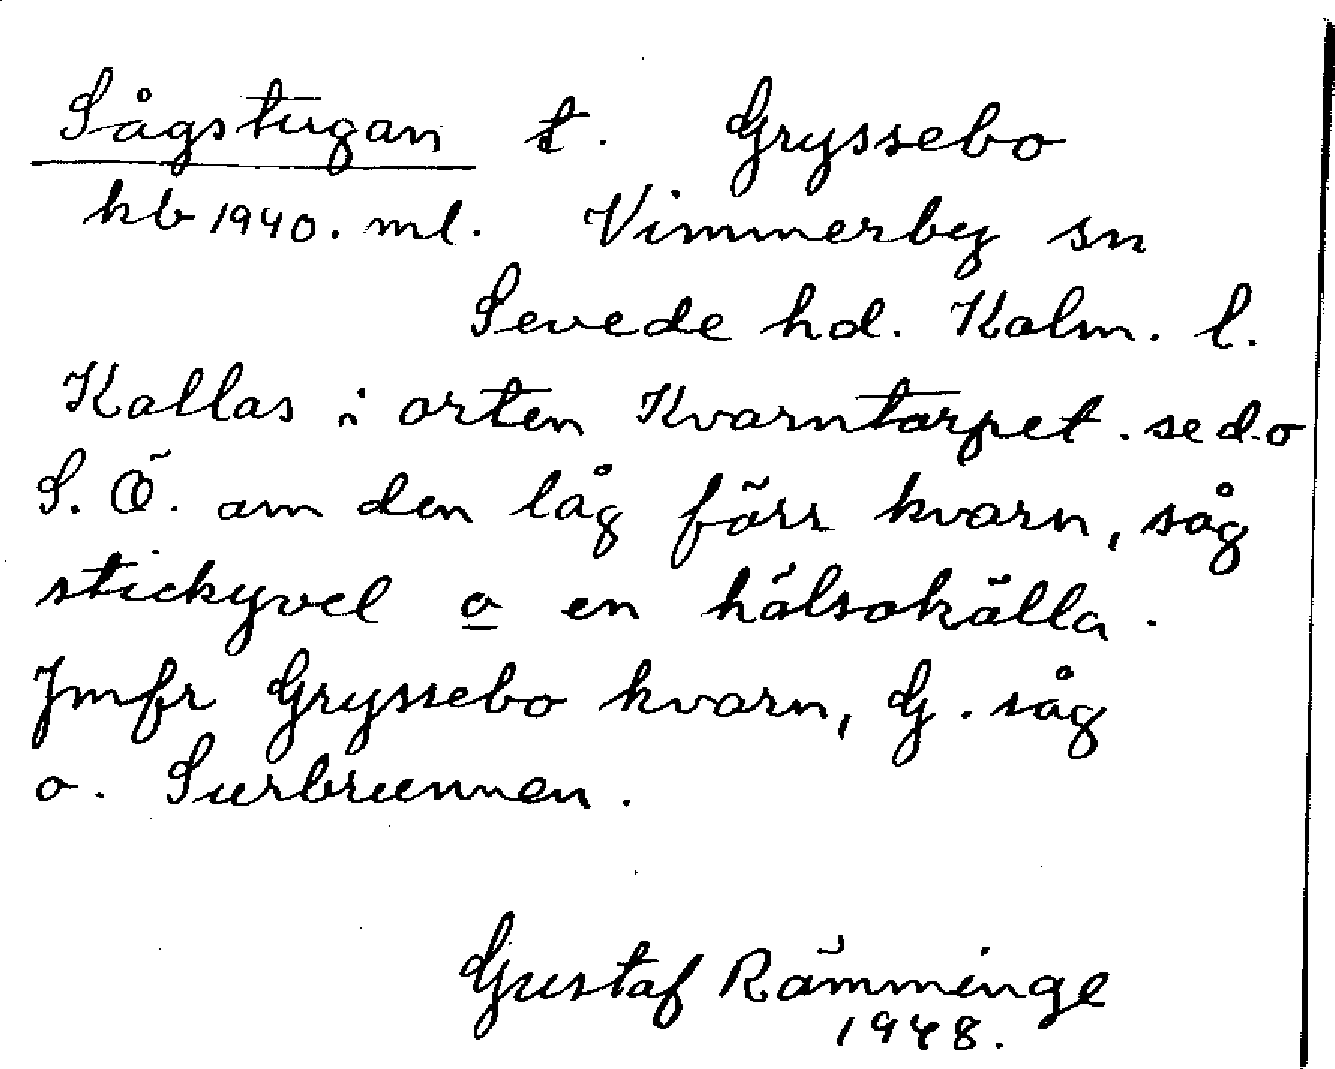 Sågstugan t. Gryssebo
hb 1940. ml. Vimmerby sn
Sevede hd. Kalm. l.
Kallas i orten Kvarntorpet. se d.o
S. Ö. om den låg förr kvarn, såg
stickyvel o en hälsokälla.
Jmfr Gryssebo kvarn, G. såg
o. Surbrunnen.
Gustaf Rämminge
1948.